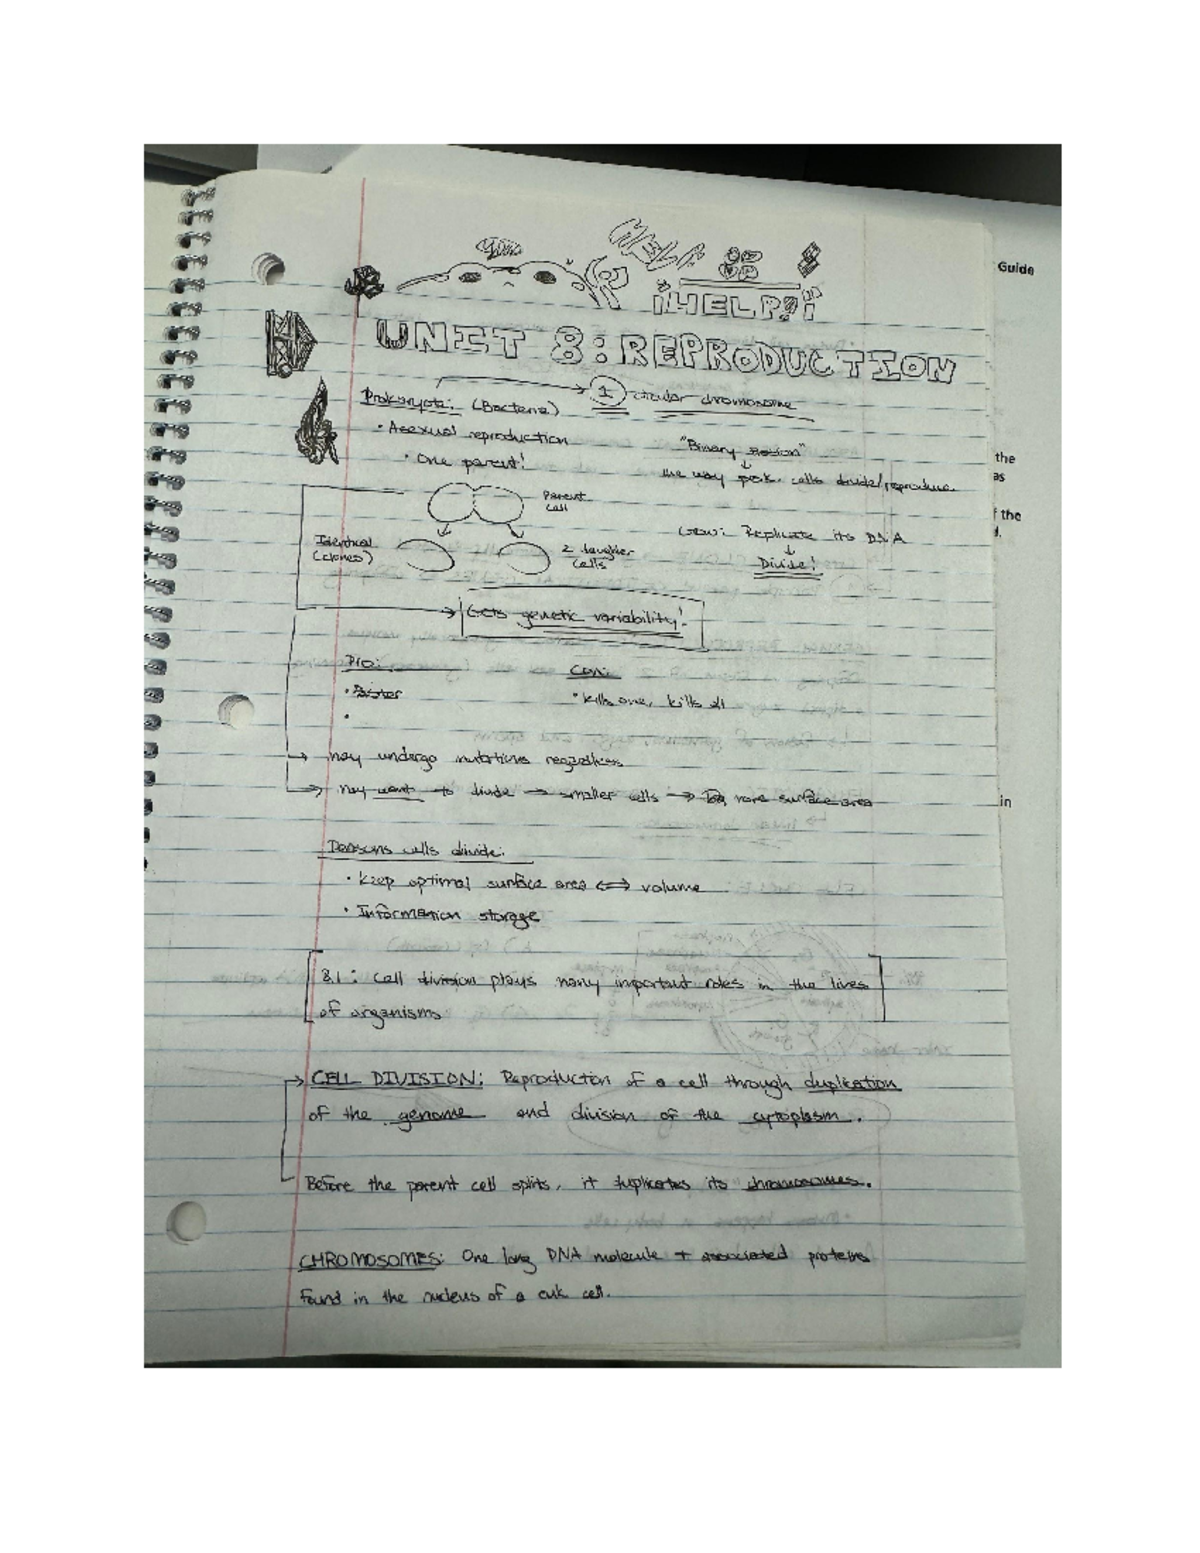 HELP
¡HELP?!
Guide
UNIT 8: REPRODUCTION
Prokaryote: (Bacteria) 1 circular chromosome
• Asexual reproduction
"Binary fission"
• One parent!
the way prok. cells divide/reproduce
the
as
Parent cell
f the
Grow: Replicate its DNA
Identical (clones)
2 daughter cells
Divide!
Gets genetic variability!
Pro:
Con:
• Faster
• Kills one, kills all
•
may undergo mutations regardless
may want to divide → smaller cells → more surface area
in
Reasons cells divide:
• Keep optimal surface area ⟷ volume
• Information storage
8.1: Cell division plays many important roles in the lives
of organisms
CELL DIVISION: Reproduction of a cell through duplication
of the genome and division of the cytoplasm.
Before the parent cell splits, it duplicates its chromosomes.
CHROMOSOMES: One long DNA molecule + associated proteins
found in the nucleus of a euk cell.